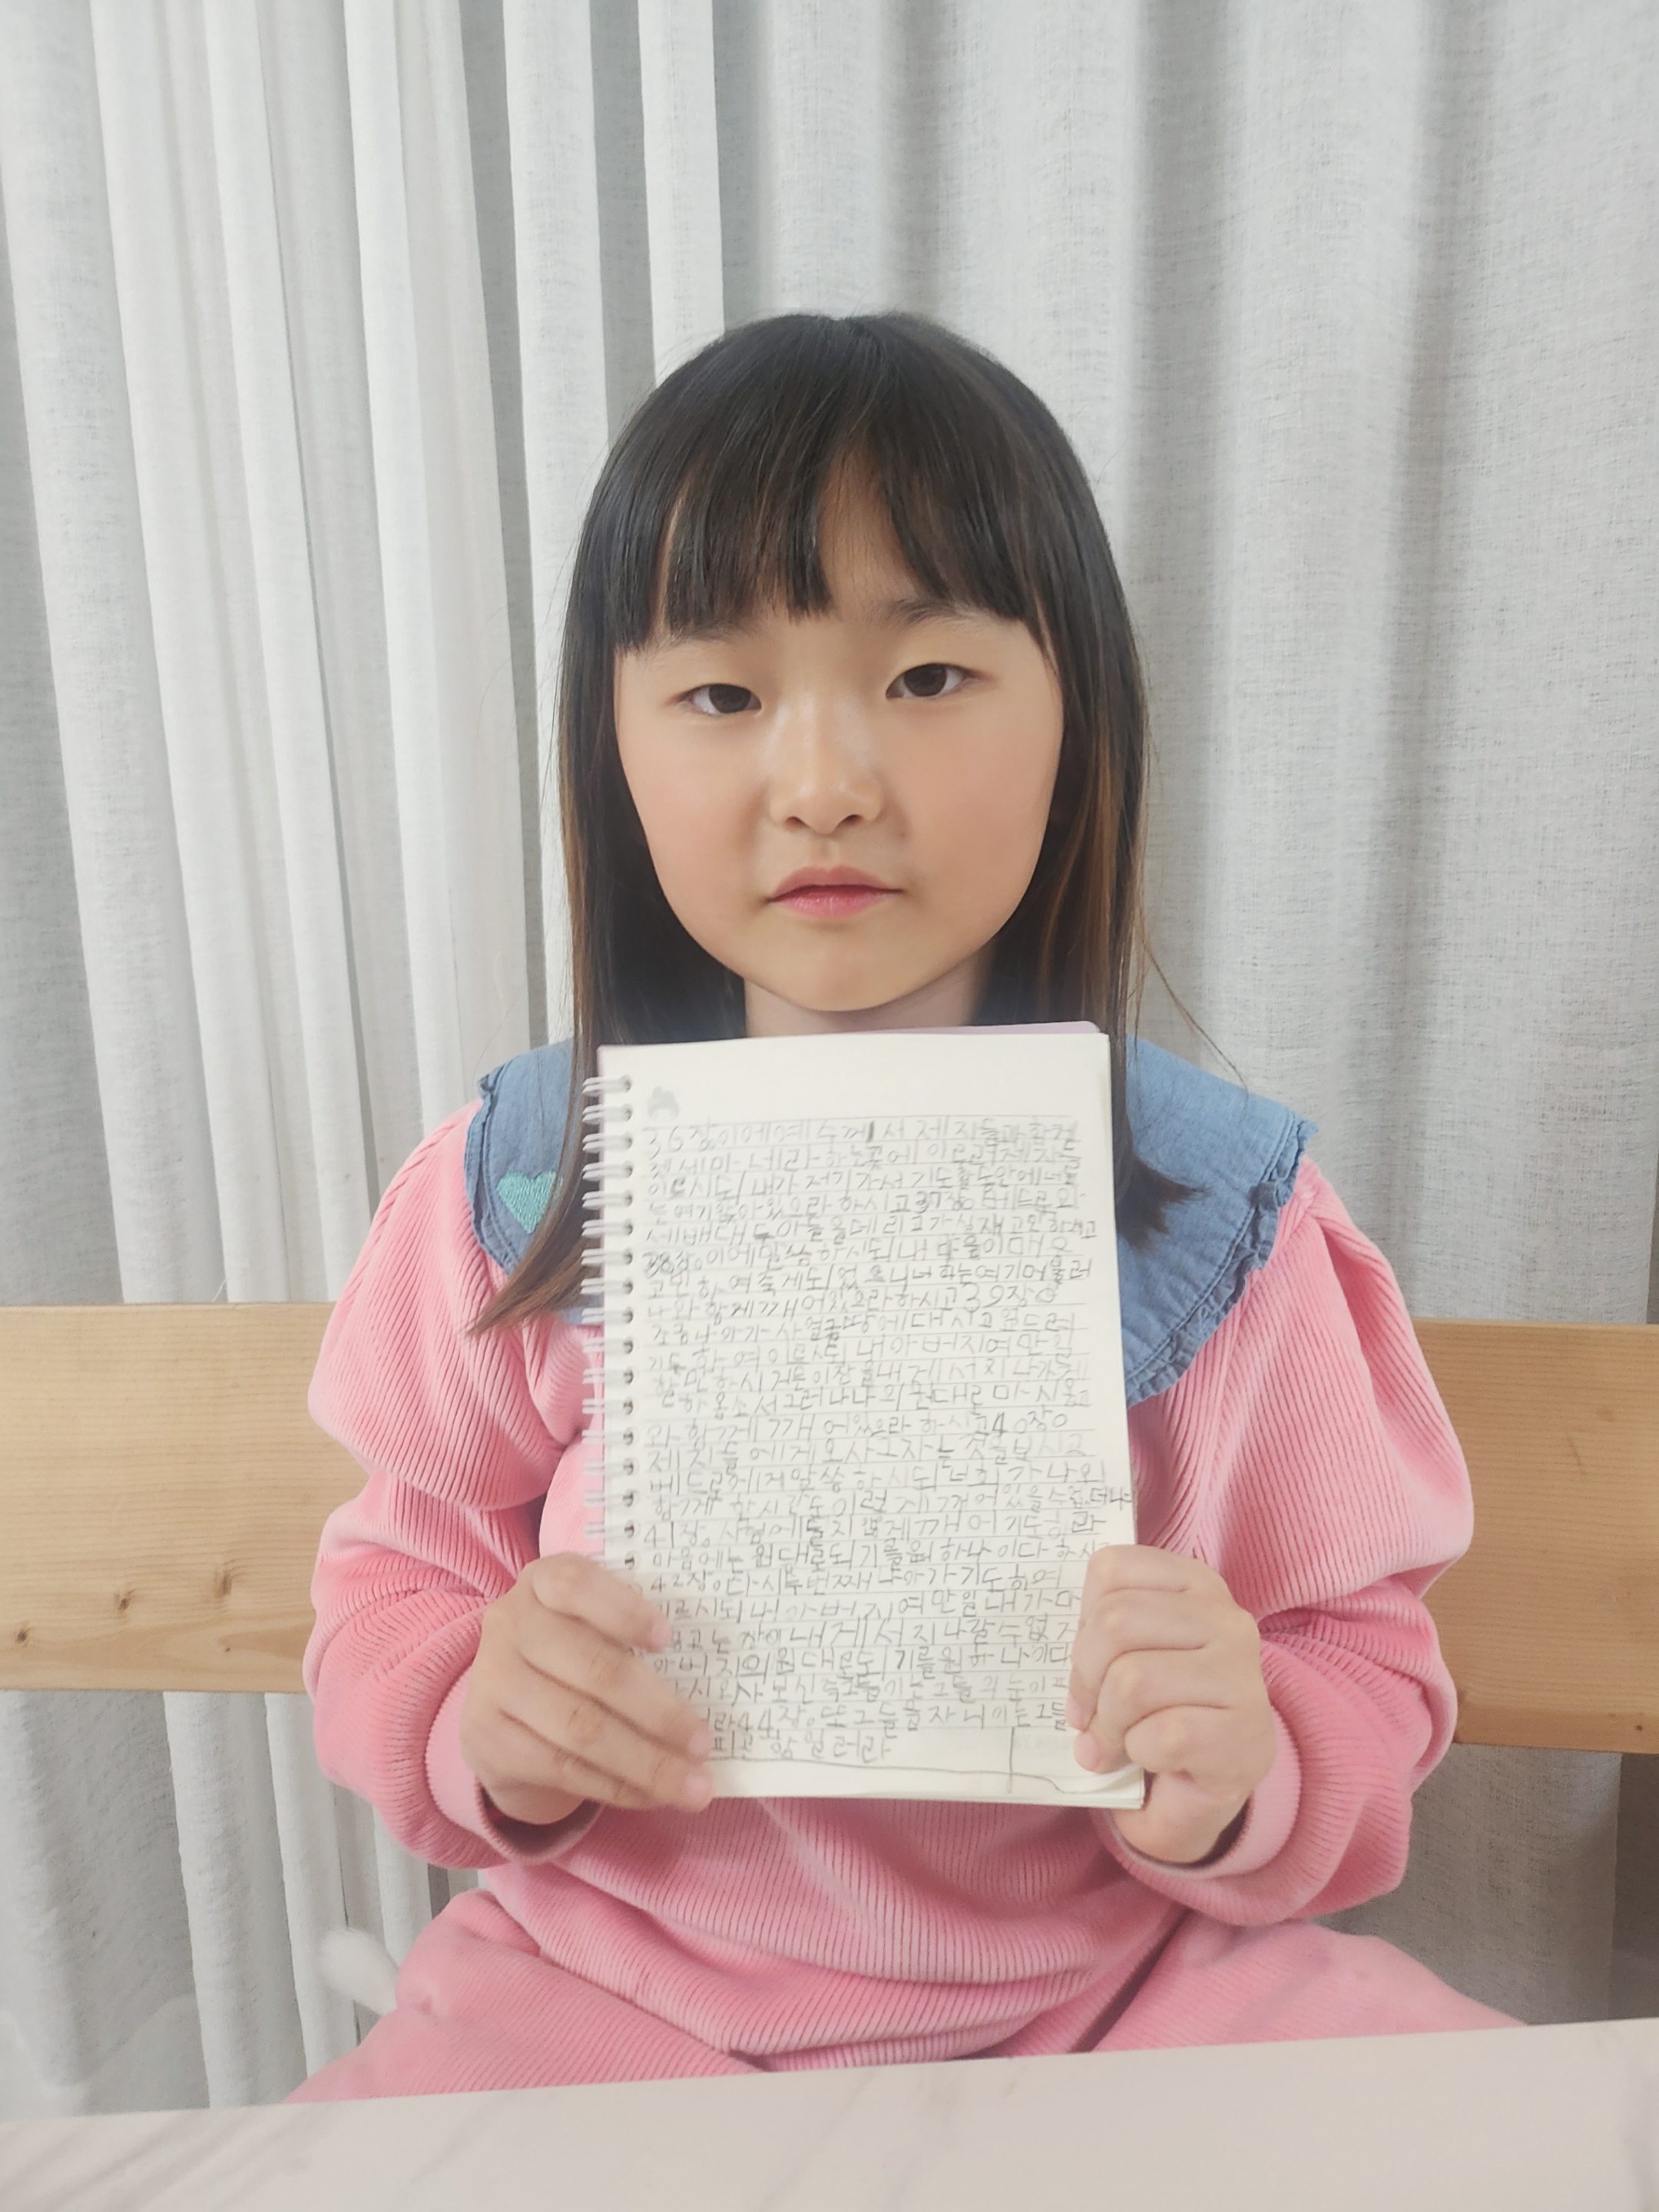 36장이에예수께서제자들과함께
겟세마네라하는곳에이르러제자들
이르시되내가저기가서기도할동안에너희
는여기앉아있으라하시고37장베드로와
세배대두아들을데리고가실재고민하시고
38장이에말씀하시되내마음이매우
고민하여죽게되었으니너희는여기머물러
나와함께깨어있으라하시고39장
조금나아가사얼굴땅에대시고엎드려
기도하여이르시되내아버지여만일
할만하시거든이잔을내게서지나가게
하옵소서그러나나의원대로마시옵고
와함께깨어있으라하시고40장
제자들에게오사그자는것을보시고
베드로에게말씀하시되너희가나와
함께한시간도이렇게깨어있을수없더냐
41장시험에들지않게깨어기도하라
마음에는원대로되기를원하나이다하시고
42장다시두번째나아가기도하여
이르시되내아버지여만일내가마
고는잔이내게서지나갈수없거
아버지의원대로되기를원하나이다
시오사보신즉그들이는그들의눈이피
라44장또그들을자니이는그들
피곤함일러라